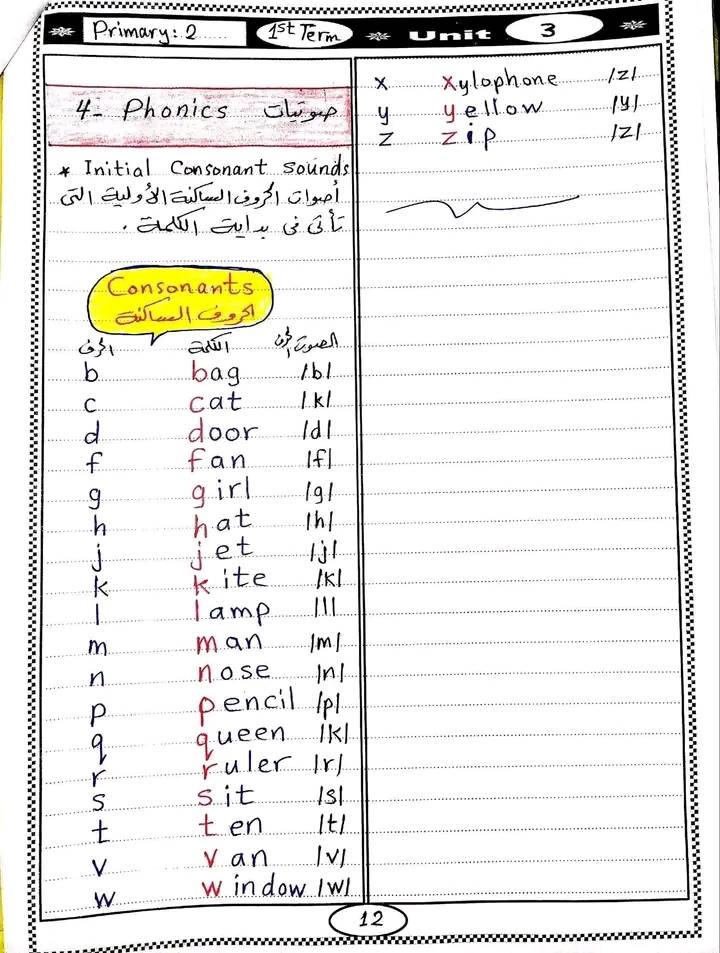 Primary: 2 1st Term Unit 3
4- Phonics صوتيات
* Initial Consonant sounds
أصوات الحروف الساكنة الأولية التى
تأتى فى بداية الكلمة .
Consonants
الحروف الساكنة
الحرف الكلمة الصوت الحرف
b bag /b/
c cat /k/
d door /d/
f fan /f/
g girl /g/
h hat /h/
j jet /j/
k kite /k/
l lamp /l/
m man /m/
n nose /n/
p pencil /p/
q queen /k/
r ruler /r/
s sit /s/
t ten /t/
v van /v/
w window /w/
x xylophone /z/
y yellow /y/
z zip /z/
12